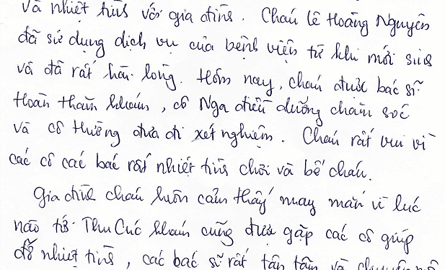 và nhiệt tình với gia đình. Cháu Lê Hoàng Nguyên
đã sử dụng dịch vụ của bệnh viện từ khi mới sinh
và đã rất hài lòng. Hôm nay, cháu được bác sĩ
Hoàn thăm khám, cô Nga điều dưỡng chăm sóc
và cô Hường đưa đi xét nghiệm. Cháu rất vui vì
các cô các bác rất nhiệt tình chơi và bế cháu.
Gia đình cháu luôn cảm thấy may mắn vì lúc
nào tới Thu Cúc khám cũng được gặp các cô giúp
đỡ nhiệt tình, các bác sĩ rất tận tâm và